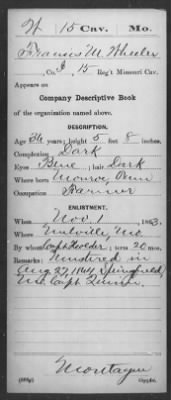 W 15 Cav. Mo.
Francis M. Wheeler
, Co. I, 15 Reg't Missouri Cav.
Appears on
Company Descriptive Book
of the organization named above.
DESCRIPTION.
Age 36 years; height 5 feet 8 inches.
Complexion Dark
Eyes Blue; hair Dark
Where born Monroe, Tenn
Occupation Farmer
ENLISTMENT.
When Nov. 1, 1863.
Where Mo.
By whom Capt. ; term 20 mos.
Remarks: Mustered in
Aug 27, 1864 Springfield,
Mo. Capt.
Montague
Copyist.